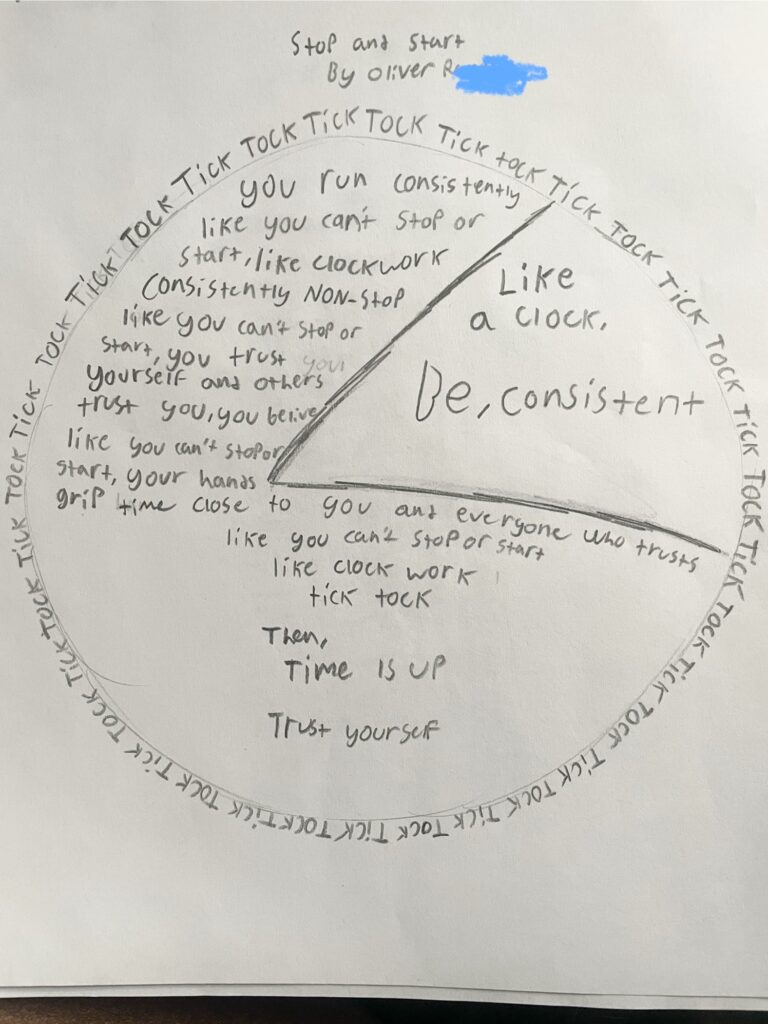 Stop and start
By Oliver R
Tick TOCK Tick tock Tick TOCK Tick TOCK Tick TOCK Tick TOCK Tick TOCK Tick TOCK Tick TOCK Tick TOCK Tick TOCK Tick TOCK Tick TOCK Tick TOCK Tick TOCK Tick TOCK Tick TOCK
you run consistently
like you can't stop or
start, like clockwork
Consistently NON-stop
like you can't stop or
start, you trust your
yourself and others
trust you, you belive
like you can't stop or
start, your hands
grip time close to you and everyone who trusts
like you can't stop or start
like clock work
tick tock
Then,
Time is up
Trust yourself
Like
a clock.
Be, consistent